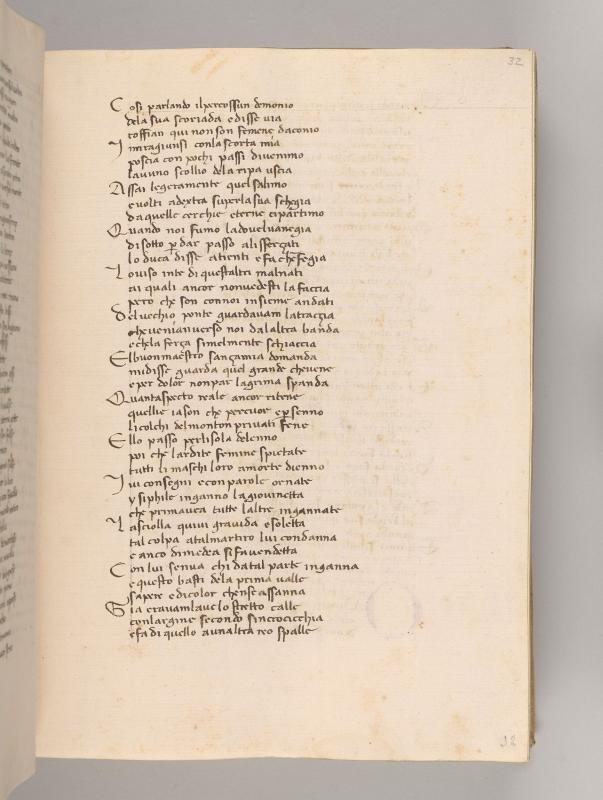 32
Cosi parlando ilpercossun demonio
dela sua scoriada e disse via
roffian qui non son femene daconio
I miragiunsi conla scorta mia
poscia con pochi passi divenimo
lavuno scollio dela ripa uscia
Assai legeramente quel salimo
e volti adextra super la sua schegia
da quelle cerchie eterne cipartimo
Quando noi fumo ladovelvanegia
disotto p dar passo alisferçati
lo duca disse atienti e fa che fegia
Loviso inte di questaltri malnati
ai quali ancor nonvedesti la faccia
pero che son connoi insieme andati
Del vechio ponte guardavam latraccia
che venian verso noi dalaltra banda
e chela ferça simelmente schiaccia
Elbuonmaestro sança mia domanda
midisse guarda quel grande chevene
e per dolor nonpar lagrima spanda
Quantaspecto reale ancor ritene
quellie iason che percuor e p senno
li colchi delmonton privati fene
Ello passo perlisola delenno
poi che lardite femine spietate
tutti li maschi loro amorte dienno
Ivi consegni econ parole ornate
ysiphile inganno la giovinetta
che primavea tutte laltre ingannate
Lasciolla quivi gravida e soletta
tal colpa atalmartiro lui condanna
e anco dimedea si fa vendetta
Con lui senva chi datal parte inganna
e questo basti dela prima valle
sapere e dicolor chense assanna
Gia eravamlave lo stretto calle
conlargine secondo sincrocicchia
e fa di quello aunaltra reo spalle
32